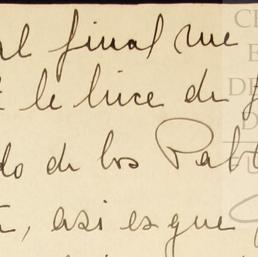 al final me
le hice de
do de los Pabl
, asi es que